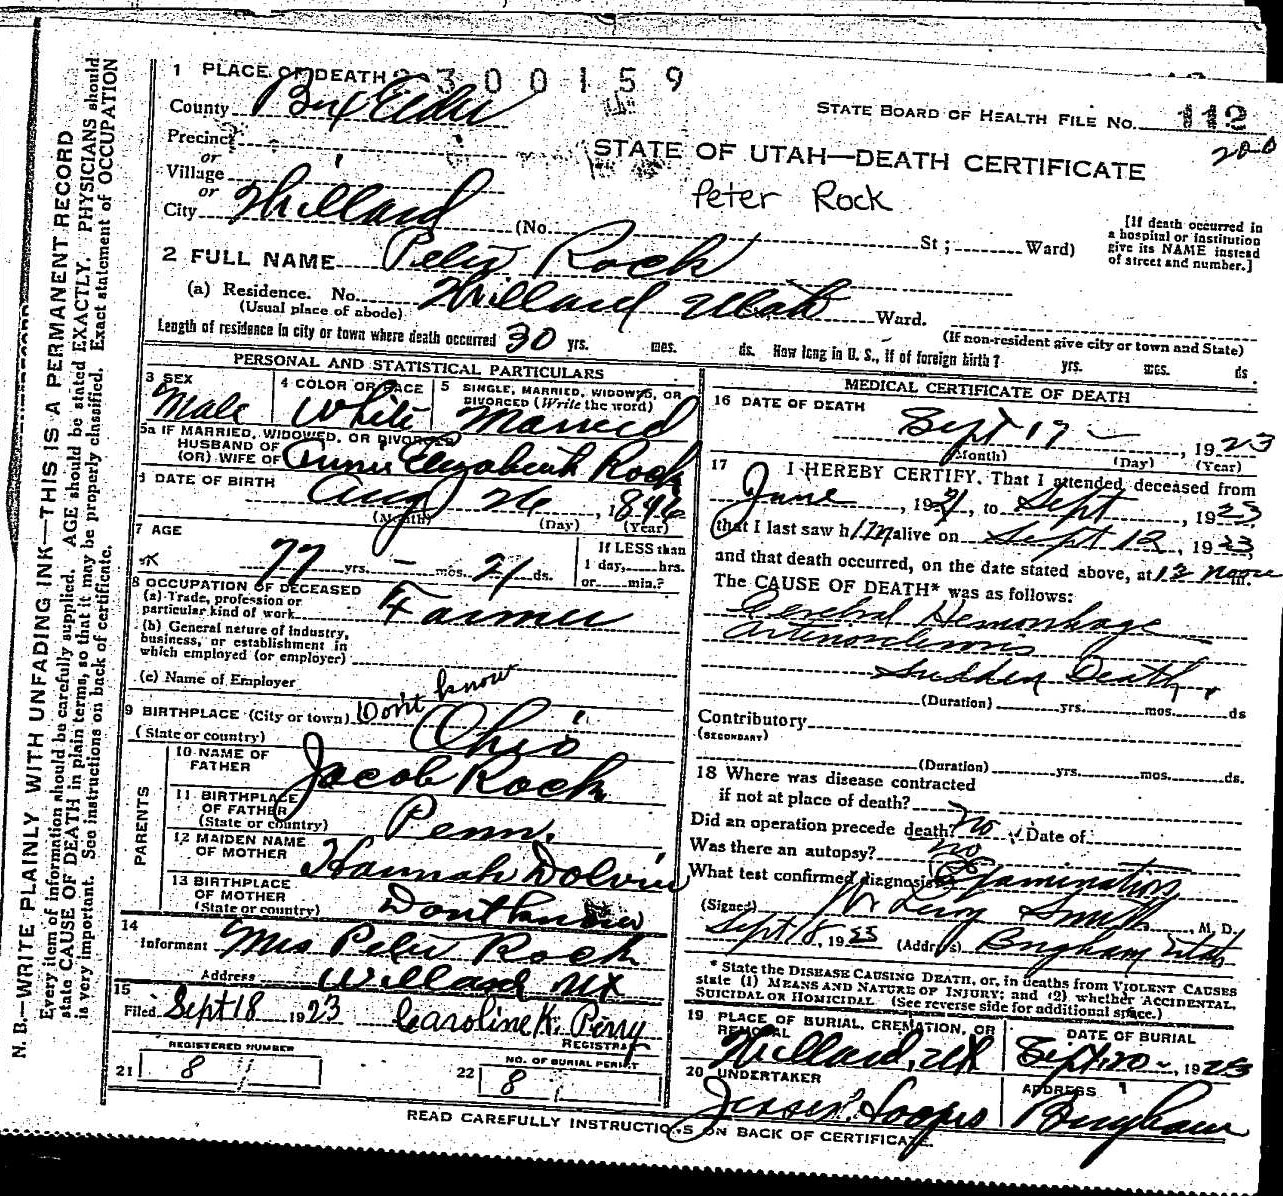 1 PLACE OF DEATH 2300159
County Box Elder
STATE BOARD OF HEALTH FILE No. 112
200
Precinct
or
STATE OF UTAH—DEATH CERTIFICATE
Village
or
Peter Rock
City Willard (No. St; Ward)
[If death occurred in
a hospital or institution
give its NAME instead
of street and number.]
2 FULL NAME Peter Rock
(a) Residence. No. Willard Utah Ward.
(Usual place of abode)
(If non-resident give city or town and State)
Length of residence in city or town where death occurred 30 yrs. mos. ds. How long in U. S., if of foreign birth? yrs. mos. ds
PERSONAL AND STATISTICAL PARTICULARS
3 SEX
Male
4 COLOR OR RACE
White
5 SINGLE, MARRIED, WIDOWED, OR
DIVORCED (Write the word)
Married
5a IF MARRIED, WIDOWED, OR DIVORCED
HUSBAND OF
(OR) WIFE OF Elizabeth Rock
DATE OF BIRTH
Aug 26, 1846
(Month) (Day) (Year)
7 AGE
77 yrs. — mos. 21 ds.
If LESS than
1 day, hrs.
or min.?
8 OCCUPATION OF DECEASED
(a) Trade, profession or
particular kind of work Farmer
(b) General nature of industry,
business, or establishment in
which employed (or employer)
(c) Name of Employer
9 BIRTHPLACE (City or town) Don't know
(State or country) Ohio
PARENTS
10 NAME OF
FATHER Jacob Rock
11 BIRTHPLACE
OF FATHER
(State or country) Penn.
12 MAIDEN NAME
OF MOTHER Hannah
13 BIRTHPLACE
OF MOTHER
(State or country) Dont know
14
Informant Mrs Peter Rock
Address Willard Ut
15
Filed Sept 18 1923 Caroline K. Perry
REGISTRAR
REGISTERED NUMBER
21 8
NO. OF BURIAL PERMIT
22 8
MEDICAL CERTIFICATE OF DEATH
16 DATE OF DEATH
Sept 17 — , 1923
(Month) (Day) (Year)
17 I HEREBY CERTIFY, That I attended deceased from
June, 1921, to Sept, 1923
that I last saw him alive on Sept 12, 1923,
and that death occurred, on the date stated above, at 12 noon m.
The CAUSE OF DEATH* was as follows:
Cerebral Hemorrhage
Sudden Death.
(Duration) yrs. mos. ds
Contributory
(SECONDARY)
(Duration) yrs. mos. ds.
18 Where was disease contracted
if not at place of death?
Did an operation precede death? no Date of
Was there an autopsy? no
What test confirmed diagnosis? Examination
(Signed) Smith, M. D.
Sept 18, 1923 (Address) Brigham Utah
* State the DISEASE CAUSING DEATH, or, in deaths from VIOLENT CAUSES
state (1) MEANS AND NATURE OF INJURY; and (2) whether ACCIDENTAL,
SUICIDAL OR HOMICIDAL. (See reverse side for additional space.)
19 PLACE OF BURIAL, CREMATION, OR
REMOVAL
Willard, Ut
DATE OF BURIAL
Sept 20 —, 1923
20 UNDERTAKER
ADDRESS
Brigham
READ CAREFULLY INSTRUCTIONS ON BACK OF CERTIFICATE.
N. B.—WRITE PLAINLY WITH UNFADING INK—THIS IS A PERMANENT RECORD
Every item of information should be carefully supplied. AGE should be stated EXACTLY. PHYSICIANS should
state CAUSE OF DEATH in plain terms, so that it may be properly classified. Exact statement of OCCUPATION
is very important. See instructions on back of certificate.